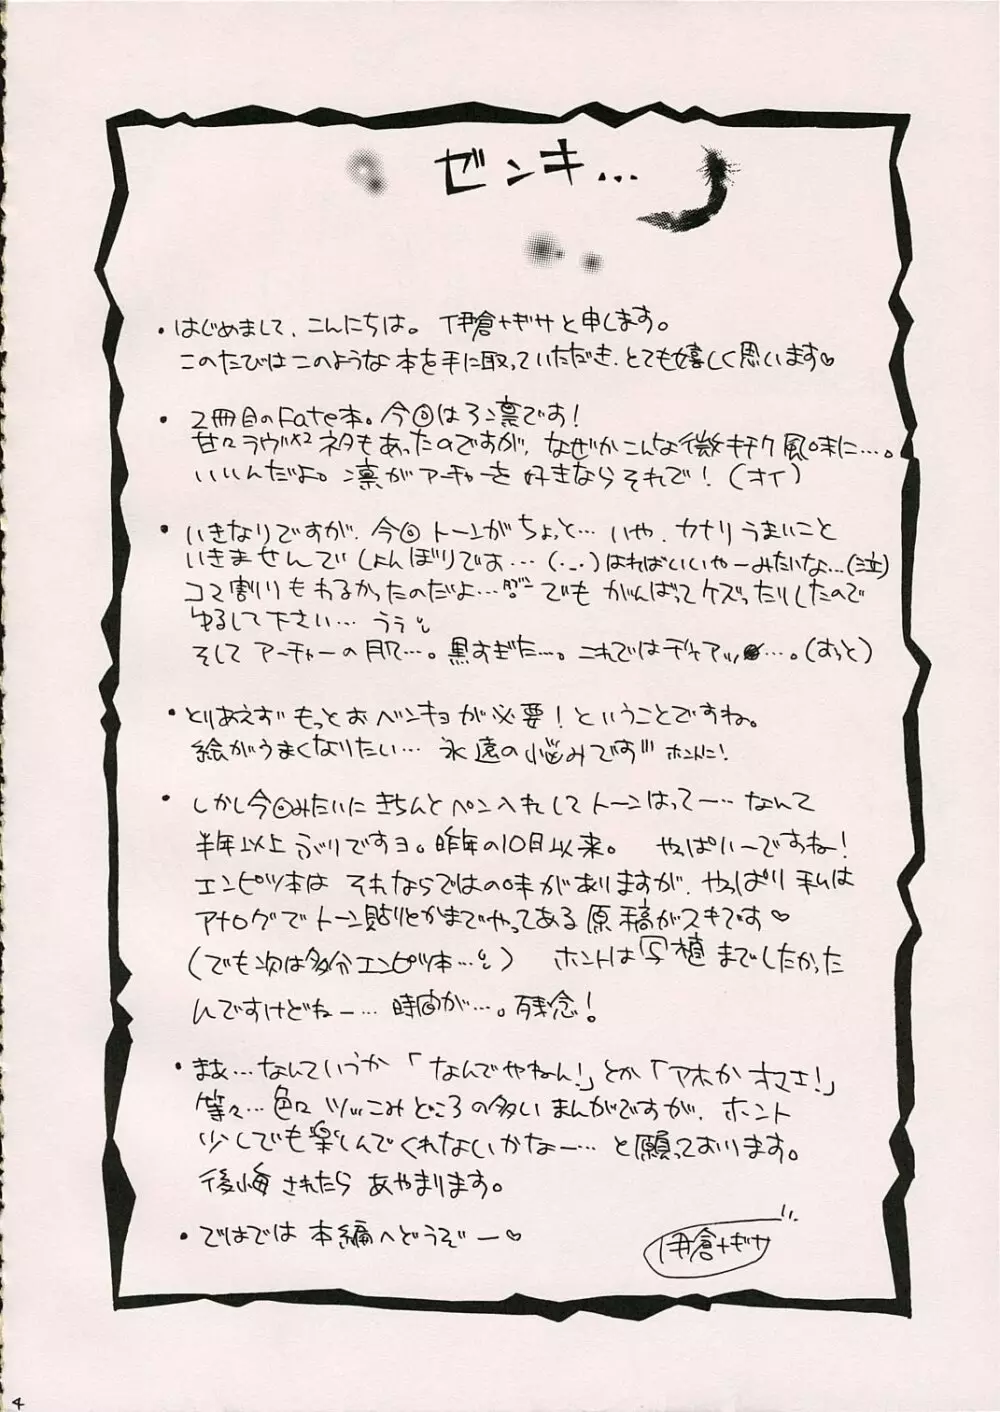 ゼンキ...
・はじめまして、こんにちは。伊倉ナギサと申します。
このたびはこのような本を手に取っていただき、とても嬉しく思います♡
・2冊目のFate本。今回は弓凛です!
甘々ラヴ×2ネタもあったのですが、なぜかこんな微キチク風味に…。
いいんだよ。凛がアーチャーを好きならそれで!(オイ)
・いきなりですが、今回トーンがちょっと…いや、カナリうまいこと
いきませんでしょんぼりでお…(._.)はればいいやーみたいな…(泣)
コマ割りもわるかったのだよ…でもがんばってケズったりしたので
ゆるして下さい…うぅ
そしてアーチャーの肌…。黒すぎた…。これではギャアッ…。(もっと)
・とりあえずもっとおベンキョが必要!ということですね。
絵がうまくなりたい…永遠の悩みです!!! ホントに!
・しかし今回みたいにきちんとペン入れしてトーンはってー…なんて
半年以上ぶりですヨ。昨年の10月以来。やっぱいーですね!
エンピツ本はそれならではの味がありますが、やっぱり私は
アナログでトーン貼りとかまでやってある原稿がスキです♡
(でも次は多分エンピツ本…) ホントは写植までしたかった
んですけどねー…時間が…。残念!
・まぁ…なんていうか「なんでやねん!」とか「アホかオマエ!」
等々…色々ツッこみどころの多いまんがですが、ホント
少しでも楽しんでくれないかなー…と願っております。
後悔されたらあやまります。
・ではでは本編へどうぞー♡
伊倉ナギサ
4